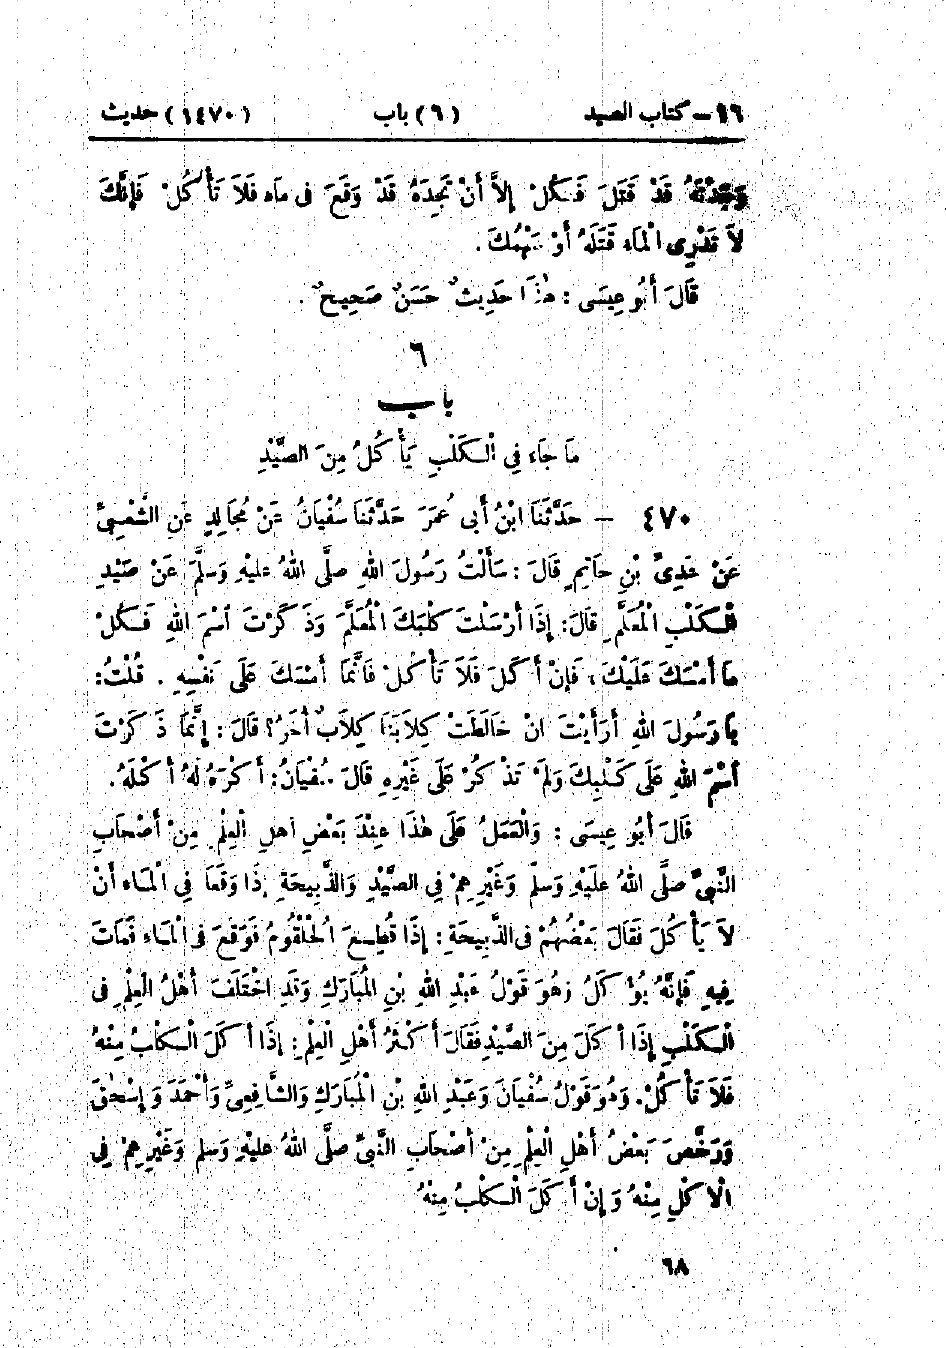 ١٦ – كتاب الصيد (٦) باب (١٤٧٠) حديث
وَجَدْتَهُ قَدْ قَتَلَ فَكُلْ إِلاَّ أَنْ تَجِدَهُ قَدْ وَقَعَ فى مَاء فَلاَ تَأْكُلْ فَإِنَّكَ
لاَ تَدْرِى الْمَاء قَتَلَهُ أَوْ سَهْمُكَ .
قَالَ أَبُو عِيسَى : هٰذَا حَدِيثٌ حَسَنٌ صَحِيحٌ .
٦
باب
مَا جَاءَ فِى الْكَلْبِ يَأْكُلُ مِنَ الصَّيْدِ
٤٧٠ – حَدَّثَنَا ابْنُ أَبى عُمَرَ حَدَّثَنَا سُفْيَانُ عَنْ مُجَالِدٍ عَنِ الشَّعْبِىِّ
عَنْ عَدِىِّ بْنِ حَاتِمٍ قَالَ : سَأَلْتُ رَسُولَ اللهِ صلَّى اللهُ عليْهِ وَسَلمَ عَنْ صَيْدِ
الْكَلْبِ الْمُعَلَّمِ قَالَ: إِذَا أَرْسَلْتَ كَلْبَكَ الْمُعَلَّمَ وَذَكَرْتَ اسْمَ اللهِ فَكُلْ
مَا أَمْسَكَ عَلَيْكَ ، فَإِنْ أَكَلَ فَلاَ تَأْكُلْ فَانَّمَا أَمْسَكَ عَلَى نَفْسِهِ . قُلْتُ:
يَا رَسُولَ اللهِ أَرَأَيْتَ انْ خَالَطَتْ كِلاَبَنَا كِلاَبٌ أُخَرُ؟ قَالَ : إِنَّمَا ذَكَرْتَ
اسْمَ اللهِ عَلَى كَلْبِكَ وَلَمْ تَذْكُرْ عَلَى غَيْرِهِ قَالَ سُفْيَانُ: أَكْرَهُ لَهُ أَكْلَهُ .
قَالَ أَبُو عِيسَى : وَالْعَمَلُ عَلَى هٰذَا عِنْدَ بَعْضِ اَهلِ الْعِلْمِ مِنْ أَصْحَابِ
النَّبِىِّ صلَّى اللهُ عَلَيْهِ وَسلّم وَغَيْرِهِمْ فِى الصَّيْدِ وَالذَّبِيحَةِ إِذَا وَقَعَا فِى الْمَاء أَنْ
لاَ يَأْكُلَ فَقَالَ بَعْضُهُمْ فى الذَّبِيحَةِ : إِذَا قُطِعَ الْحُلْقُومُ فَوَقَعَ فى الْمَاءِ فَمَاتَ
فِيهِ فَإِنَّهُ يُؤْكَلُ وَهُوَ قَوْلُ عَبْدِ اللهِ بْنِ الْمُبَارَكِ وَقَدِ اخْتَلَفَ أَهْلُ الْعِلْمِ فى
الْكَلْبِ إِذَا أَكَلَ مِنَ الصَّيْدِ فَقَالَ أَكْثَرُ أَهْلِ الْعِلْمِ : إِذَا أَكَلَ الْكَلْبُ مِنْهُ
فَلاَ تَأْكُلْ. وَهُوَ قَوْلُ سُفْيَانَ وَعَبْدِ اللهِ بْنِ الْمُبَارَكِ وَالشَّافِعِىِّ وَأَحْمَدَ وَإِسْحٰقَ
وَرَخَّصَ بَعْضُ أَهْلِ الْعِلْمِ مِنْ أَصْحَابِ النَّبِىِّ صلَّى اللهُ عليْهِ وَسلم وَغَيْرِهِمْ فِى
الْاَكْلِ مِنْهُ وَإِنْ أَكَلَ الْكَلْبُ مِنْهُ
٦٨